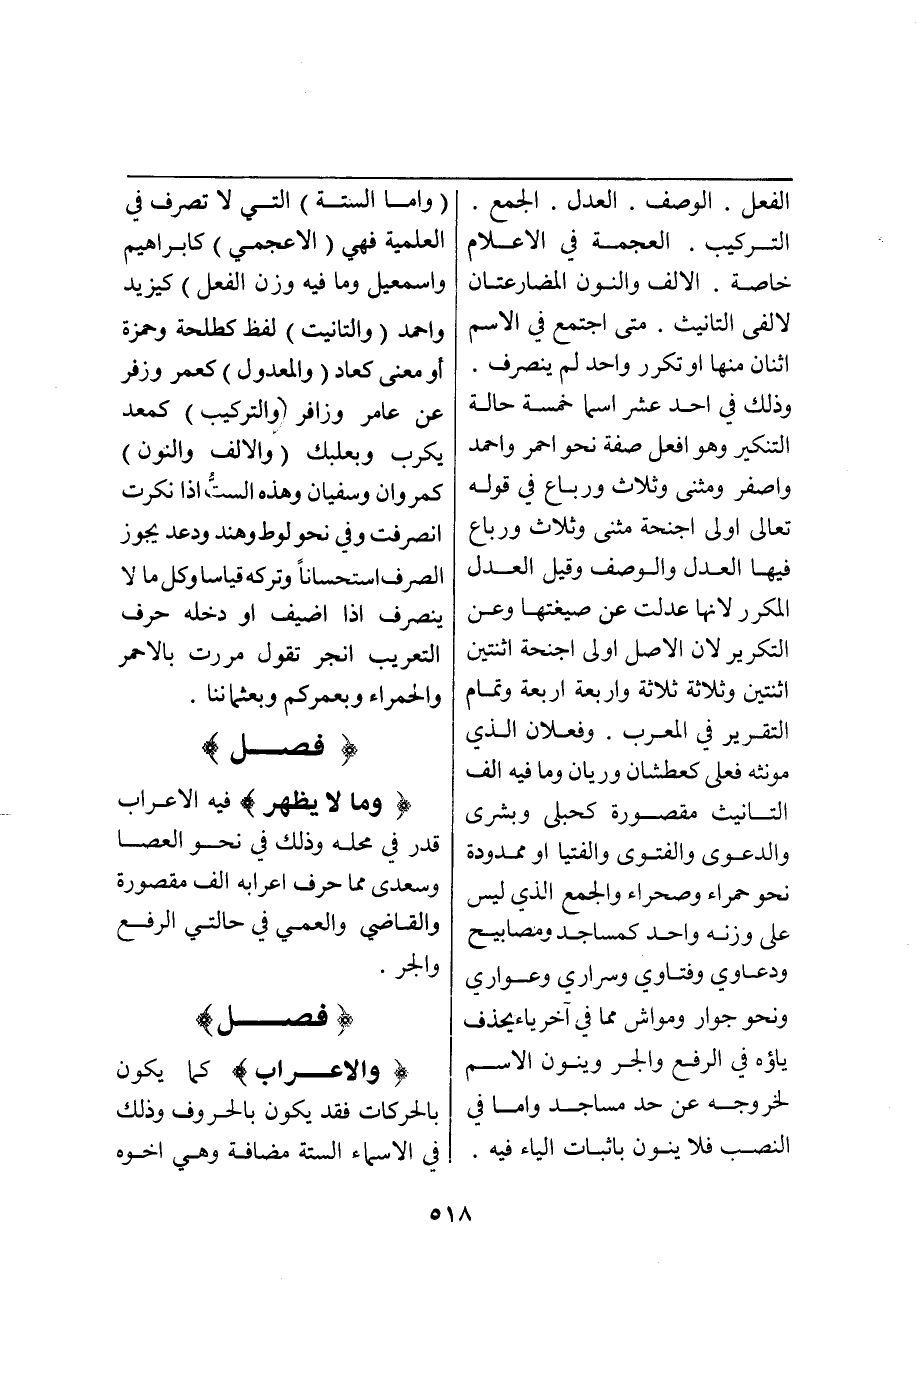 الفعل . الوصف . العدل . الجمع .
التركيب . العجمة في الاعلام
خاصة . الالف والنون المضارعتان
لالفى التانيث . متى اجتمع في الاسم
اثنان منها او تكرر واحد لم ينصرف .
وذلك في احد عشر اسما خمسة حالة
التنكير وهو افعل صفة نحو احمر واحمد
واصفر ومثنى وثلاث ورباع في قوله
تعالى اولى اجنحة مثنى وثلاث ورباع
فيها العدل والوصف وقيل العدل
المكرر لانها عدلت عن صيغتها وعن
التكرير لان الاصل اولى اجنحة اثنتين
اثنتين وثلاثة ثلاثة واربعة اربعة وتمام
التقرير في المعرب . وفعلان الذي
مونثه فعلى كعطشان وريان وما فيه الف
التانيث مقصورة كحبلى وبشرى
والدعوى والفتوى والفتيا او ممدودة
نحو حمراء وصحراء والجمع الذي ليس
على وزنه واحد كمساجد ومصابيح
ودعاوي وفتاوي وسراري وعواري
ونحو جوار ومواش مما في آخر ياء يحذف
ياؤه في الرفع والجر وينون الاسم
لخروجه عن حد مساجد واما في
النصب فلا ينون باثبات الياء فيه .
( واما الستة ) التي لا تصرف في
العلمية فهي ( الاعجمي ) كابراهيم
واسمعيل وما فيه وزن الفعل ) كيزيد
واحمد ( والتانيت ) لفظ كطلحة وحمزة
أو معنى كعاد ( والمعدول ) كعمر وزفر
عن عامر وزافر (والتركيب ) كمعد
يكرب وبعلبك ( والالف والنون )
كمروان وسفيان وهذه الستُّ اذا نكرت
انصرفت وفي نحو لوط وهند ودعد يجوز
الصرف استحساناً وتركه قياسا وكل ما لا
ينصرف اذا اضيف او دخله حرف
التعريب انجر تقول مررت بالاحمر
والحمراء وبعمركم وبعثماننا .
﴿ فصل ﴾
﴿ وما لا يظهر ﴾ فيه الاعراب
قدر في محله وذلك في نحو العصا
وسعدى مما حرف اعرابه الف مقصورة
والقاضي والعمي في حالتي الرفع
والجر .
﴿ فصل ﴾
﴿ والاعراب ﴾ كما يكون
بالحركات فقد يكون بالحروف وذلك
في الاسماء الستة مضافة وهي اخوه
٥١٨